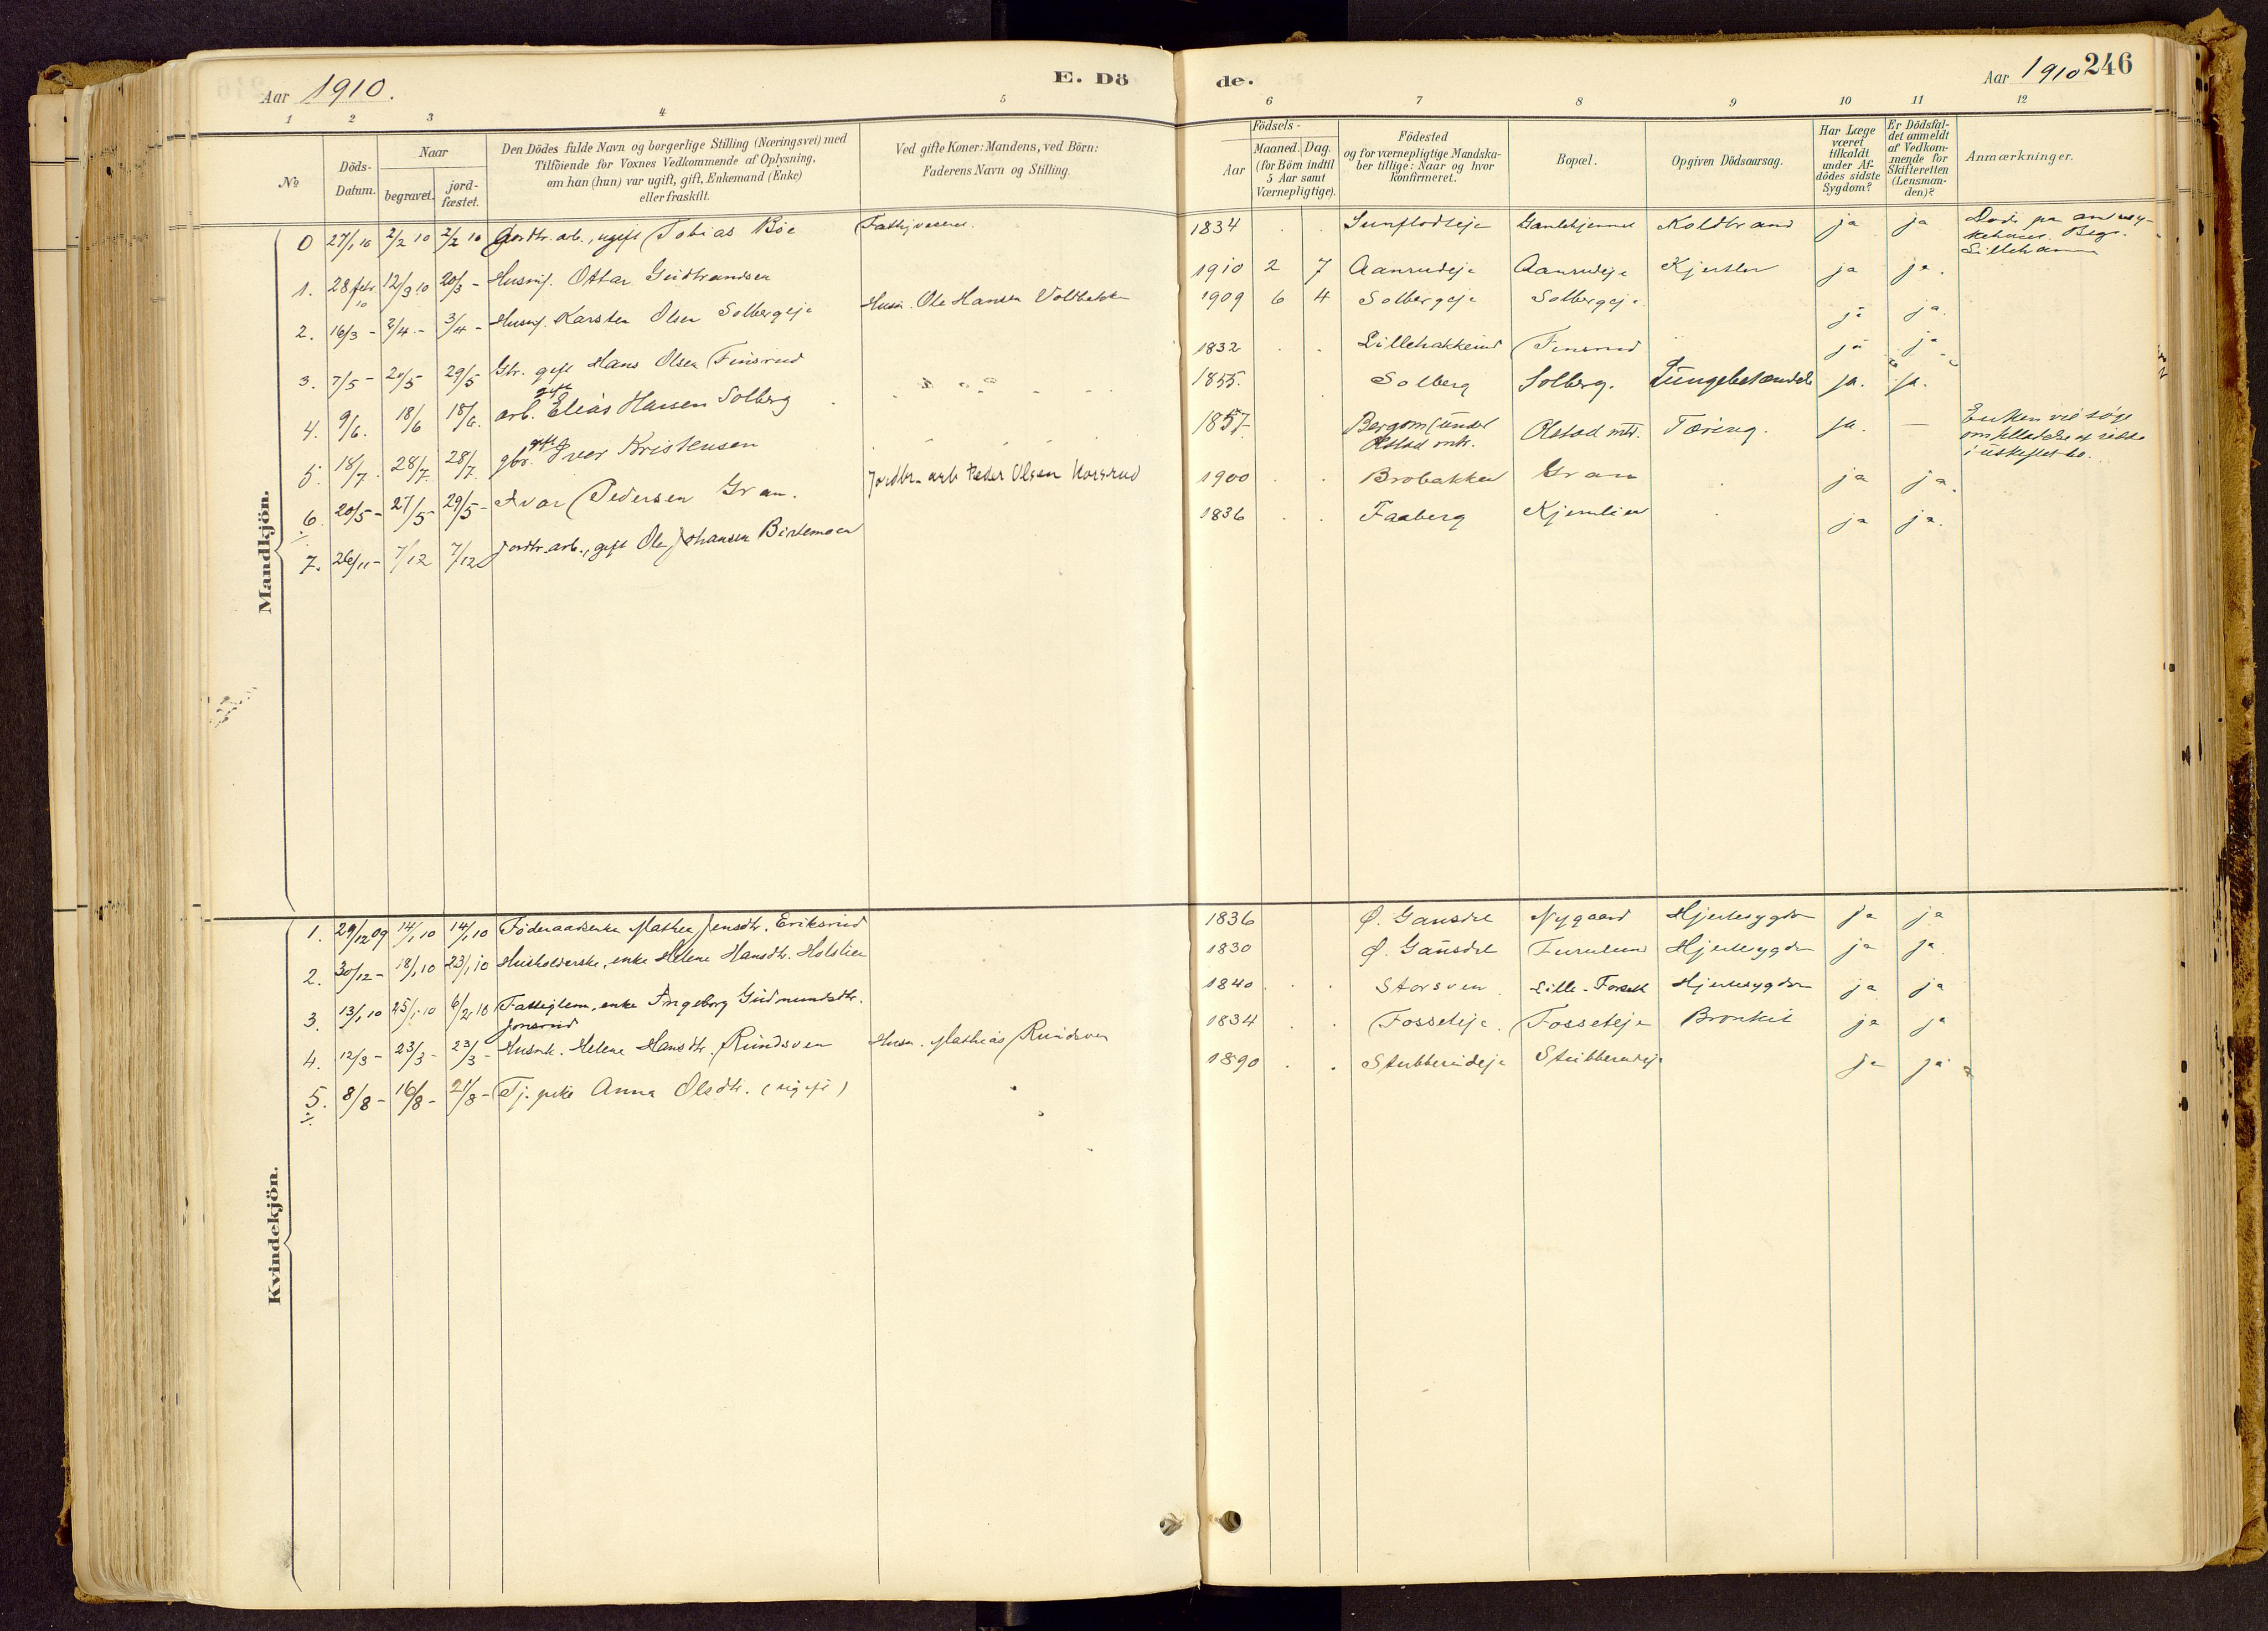 Aar 1910.
E. Dö
de.
Aar 1910 246
1 2 3 4 5 6 7 8 9 10 11 12
No
Döds-Datum.
Naar
begravet.
jord-fæstet.
Den Dödes fulde Navn og borgerlige Stilling (Næringsvei) med
Tilföiende for Voxnes Vedkommende af Oplysning,
om han (hun) var ugift, gift, Enkemand (Enke)
eller fraskilt.
Ved gifte Koner: Mandens, ved Börn:
Faderens Navn og Stilling.
Födsels-
Aar
Maaned. Dag.
(for Börn indtil
5 Aar samt
Værnepligtige).
Födested
og for værnepligtige Mandska-
ber tillige: Naar og hvor
konfirmeret.
Bopæl.
Opgiven Dödsaarsag.
Har Læge
været
tilkaldt
under Af-
dödes sidste
Sygdom?
Er Dödsfal-
det anmeldt
af Vedkom-
mende for
Skifteretten
(Lensman-
den)?
Anmærkninger.
Mandkjön.
0 27/1 10 2/2 10 2/2 10 Jordbr. arb., ugift Tobias Böe Fattigvæsenet. 1834 Koldbrand ja ja
1. 28 febr. 10 12/3 10 20/3 - Husmf. Ottar Gudbrandsen 1910 2 7 Aanrudeje Aanrudeje ja ja.
2. 16/3 - 2/4 - 3/4 - Husmf. Karsten Olsen Solbergeje Husm. Ole Hansen 1909 6 4 Solbergeje Solbergeje. ja ja.
3. 7/5 - 29/5 Gbr. gift Hans Olsen Finsrud 1832 ja ja
4. 9/6. 18/6 18/6. arb. gift Elias Hansen Solberg 1855. Solberg Solberg. ja. ja.
5. 18/7. 28/7. 28/7. gbr. gift Iver Kristensen 1857. Bergom under Olstad mtr. Olstad mtr. Tæring. ja. —
6. 20/5 - 27/5 - 29/5 - Avar Pedersen Gran. Jordbr. arb Peder Olsen Korsrud 1900 Brobakken Gran ja ja.
7. 26/11 - 7/12 7/12 Jordbr. arb., gift Ole Johansen 1836 Faaberg Kjernlien ja ja.
Kvindekjön.
1. 29/12 09 14/1 10 14/1 10 Föderaadsenke Mathea Jensdtr. Eriksrud 1836 Ö. Gausdal Nygaard Hjertesygdom ja ja
2. 30/12 - 18/1 10 23/1 10 Husholderske, enke Helene Hansdtr. Holslien 1830 Ö. Gausdal Furulund Hjertesygdom ja ja.
3. 13/1 10 25/1 10 6/2 10 Fattiglem, enke Ingeborg Gudmundsdtr. Jonsrud 1840 Storsven Hjertesygdom ja ja
4. 12/3 - 23/3 - 23/3 - Husmk. Helene Hansdtr. Rundsven Husm. Mathias Rundsven 1834 Fosseteje. Fosseteje Bronkit ja ja
5. 8/8 - 16/8 - 21/8 - Tj. pike Anna Olsdtr. (ugift) 1890 Stubberudeje Stubberudeje ja ja